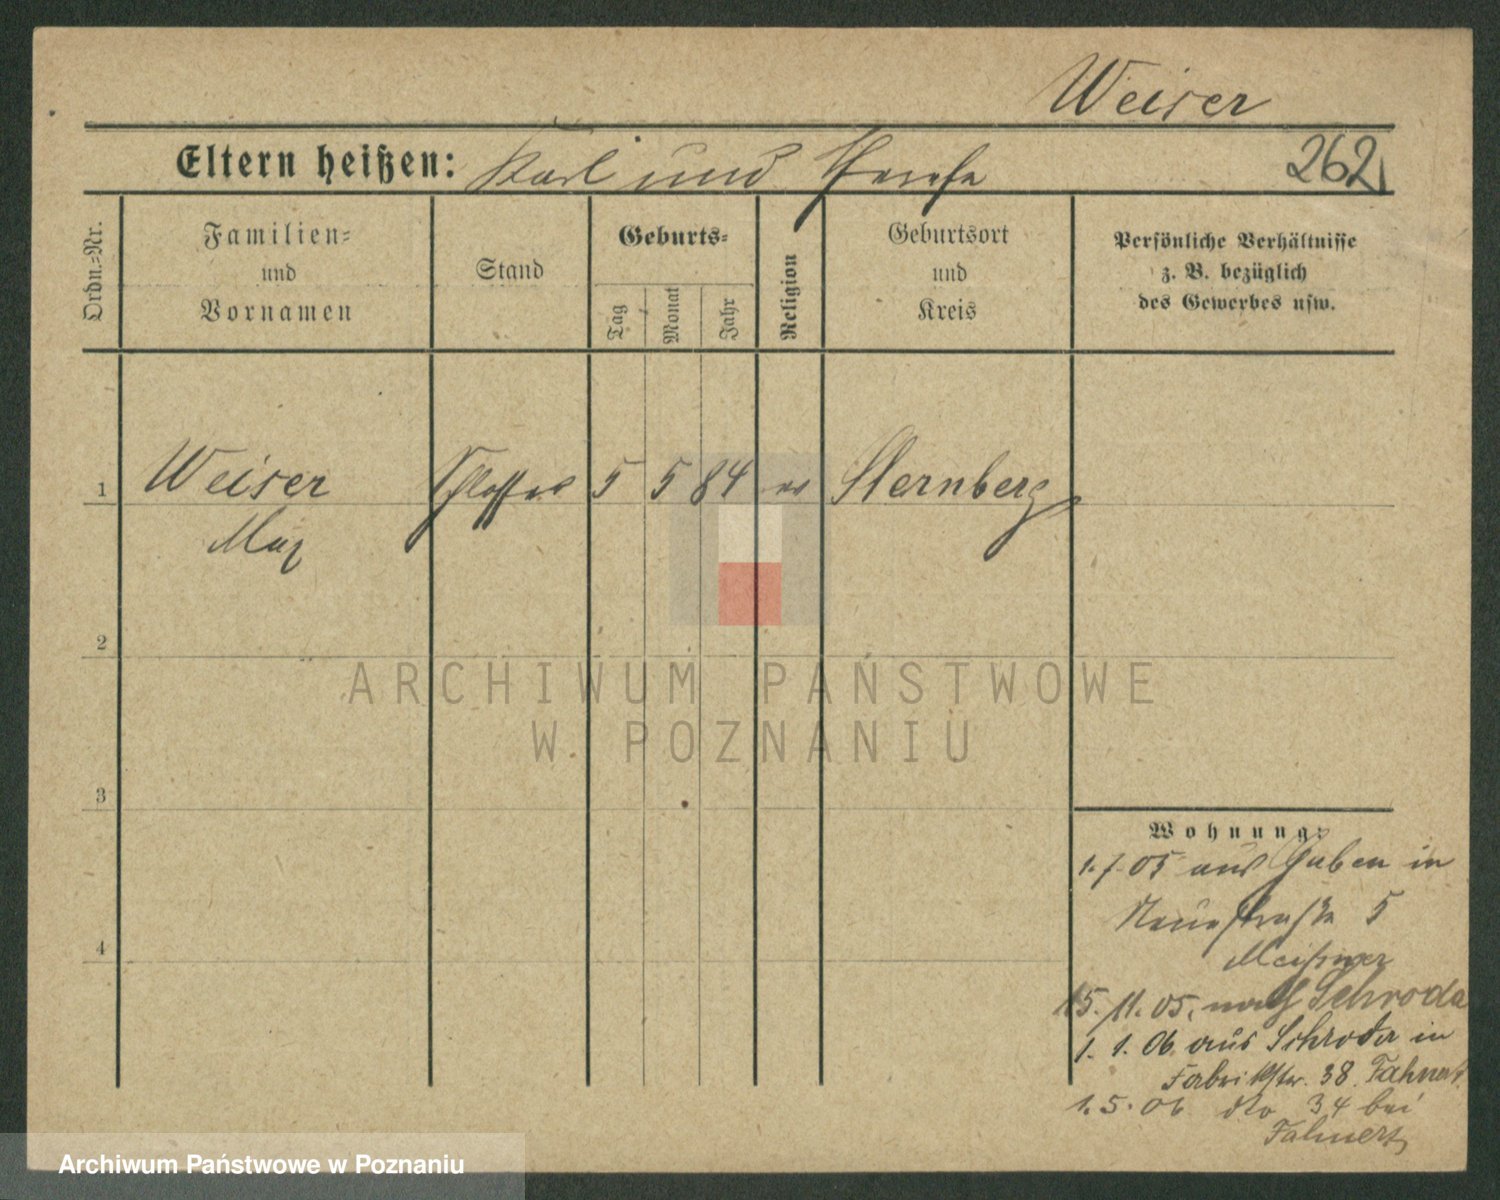 Weiser
Eltern heißen: Karl und Therese
262
Ordn.-Nr.
Familien-
und
Vornamen
Stand
Geburts-
Tag
Monat
Jahr
Religion
Geburtsort
und
Kreis
Persönliche Verhältnisse
z. B. bezüglich
des Gewerbes usw.
1 Weiser Schlosser 5 5 84 ev Sternberg
Max
2
3
4
Wohnung:
1.7.05 aus Guben in
Neuestraße 5
Meißner
15.11.05. nach Schroda
1. 1. 06 aus Schroda in
Fabrikstr. 38. Fahnert
1.5.06 dto 34 bei
Fahnert
ARCHIWUM PAŃSTWOWE
W POZNANIU
Archiwum Państwowe w Poznaniu